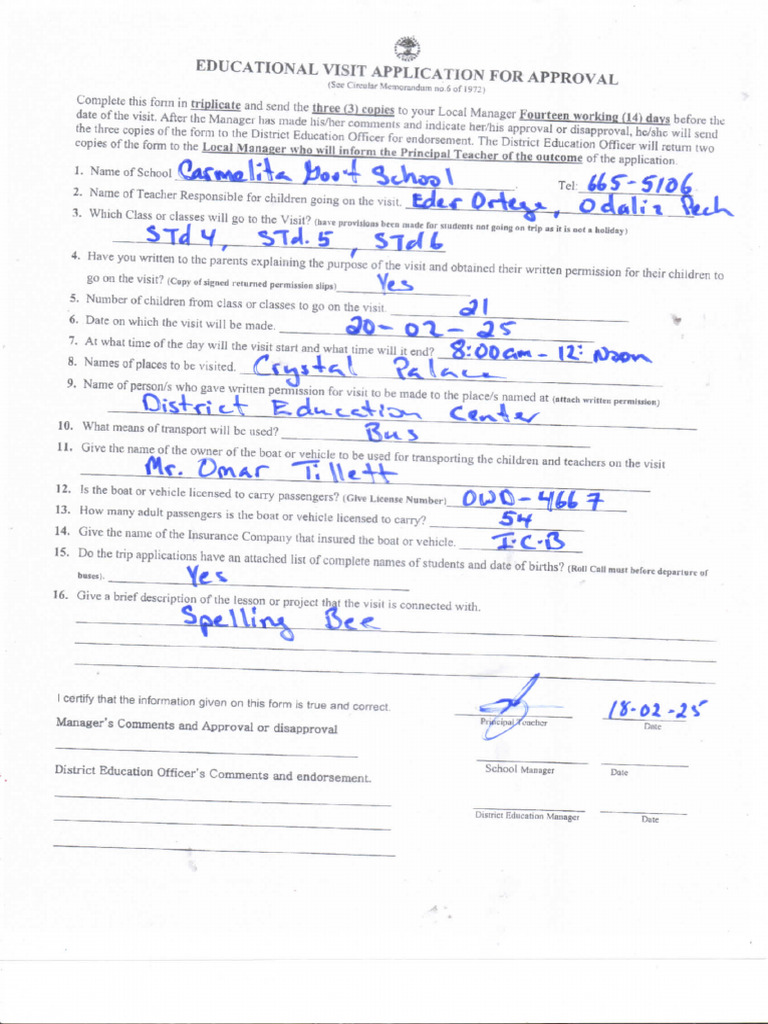 EDUCATIONAL VISIT APPLICATION FOR APPROVAL
(See Circular Memorandum no.6 of 1972)
Complete this form in triplicate and send the three (3) copies to your Local Manager Fourteen working (14) days before the
date of the visit. After the Manager has made his/her comments and indicate her/his approval or disapproval, he/she will send
the three copies of the form to the District Education Officer for endorsement. The District Education Officer will return two
copies of the form to the Local Manager who will inform the Principal Teacher of the outcome of the application.
1. Name of School Carmelita Govt School Tel: 665-5106
2. Name of Teacher Responsible for children going on the visit. Eder Ortega, Odaliz Pech
3. Which Class or classes will go to the Visit? (have provisions been made for students not going on trip as it is not a holiday)
STd 4, STd. 5, STd 6
4. Have you written to the parents explaining the purpose of the visit and obtained their written permission for their children to
go on the visit? (Copy of signed returned permission slips) Yes
5. Number of children from class or classes to go on the visit. 21
6. Date on which the visit will be made. 20-02-25
7. At what time of the day will the visit start and what time will it end? 8:00am - 12: Noon
8. Names of places to be visited. Crystal Palace
9. Name of person/s who gave written permission for visit to be made to the place/s named at (attach written permission)
District Education Center
10. What means of transport will be used? Bus
11. Give the name of the owner of the boat or vehicle to be used for transporting the children and teachers on the visit
Mr. Omar Tillett
12. Is the boat or vehicle licensed to carry passengers? (Give License Number) OWD-4667
13. How many adult passengers is the boat or vehicle licensed to carry? 54
14. Give the name of the Insurance Company that insured the boat or vehicle. I.C.B
15. Do the trip applications have an attached list of complete names of students and date of births? (Roll Call must before departure of
buses). Yes
16. Give a brief description of the lesson or project that the visit is connected with.
Spelling Bee
I certify that the information given on this form is true and correct. 18-02-25
Principal Teacher Date
Manager's Comments and Approval or disapproval
School Manager Date
District Education Officer's Comments and endorsement.
District Education Manager Date